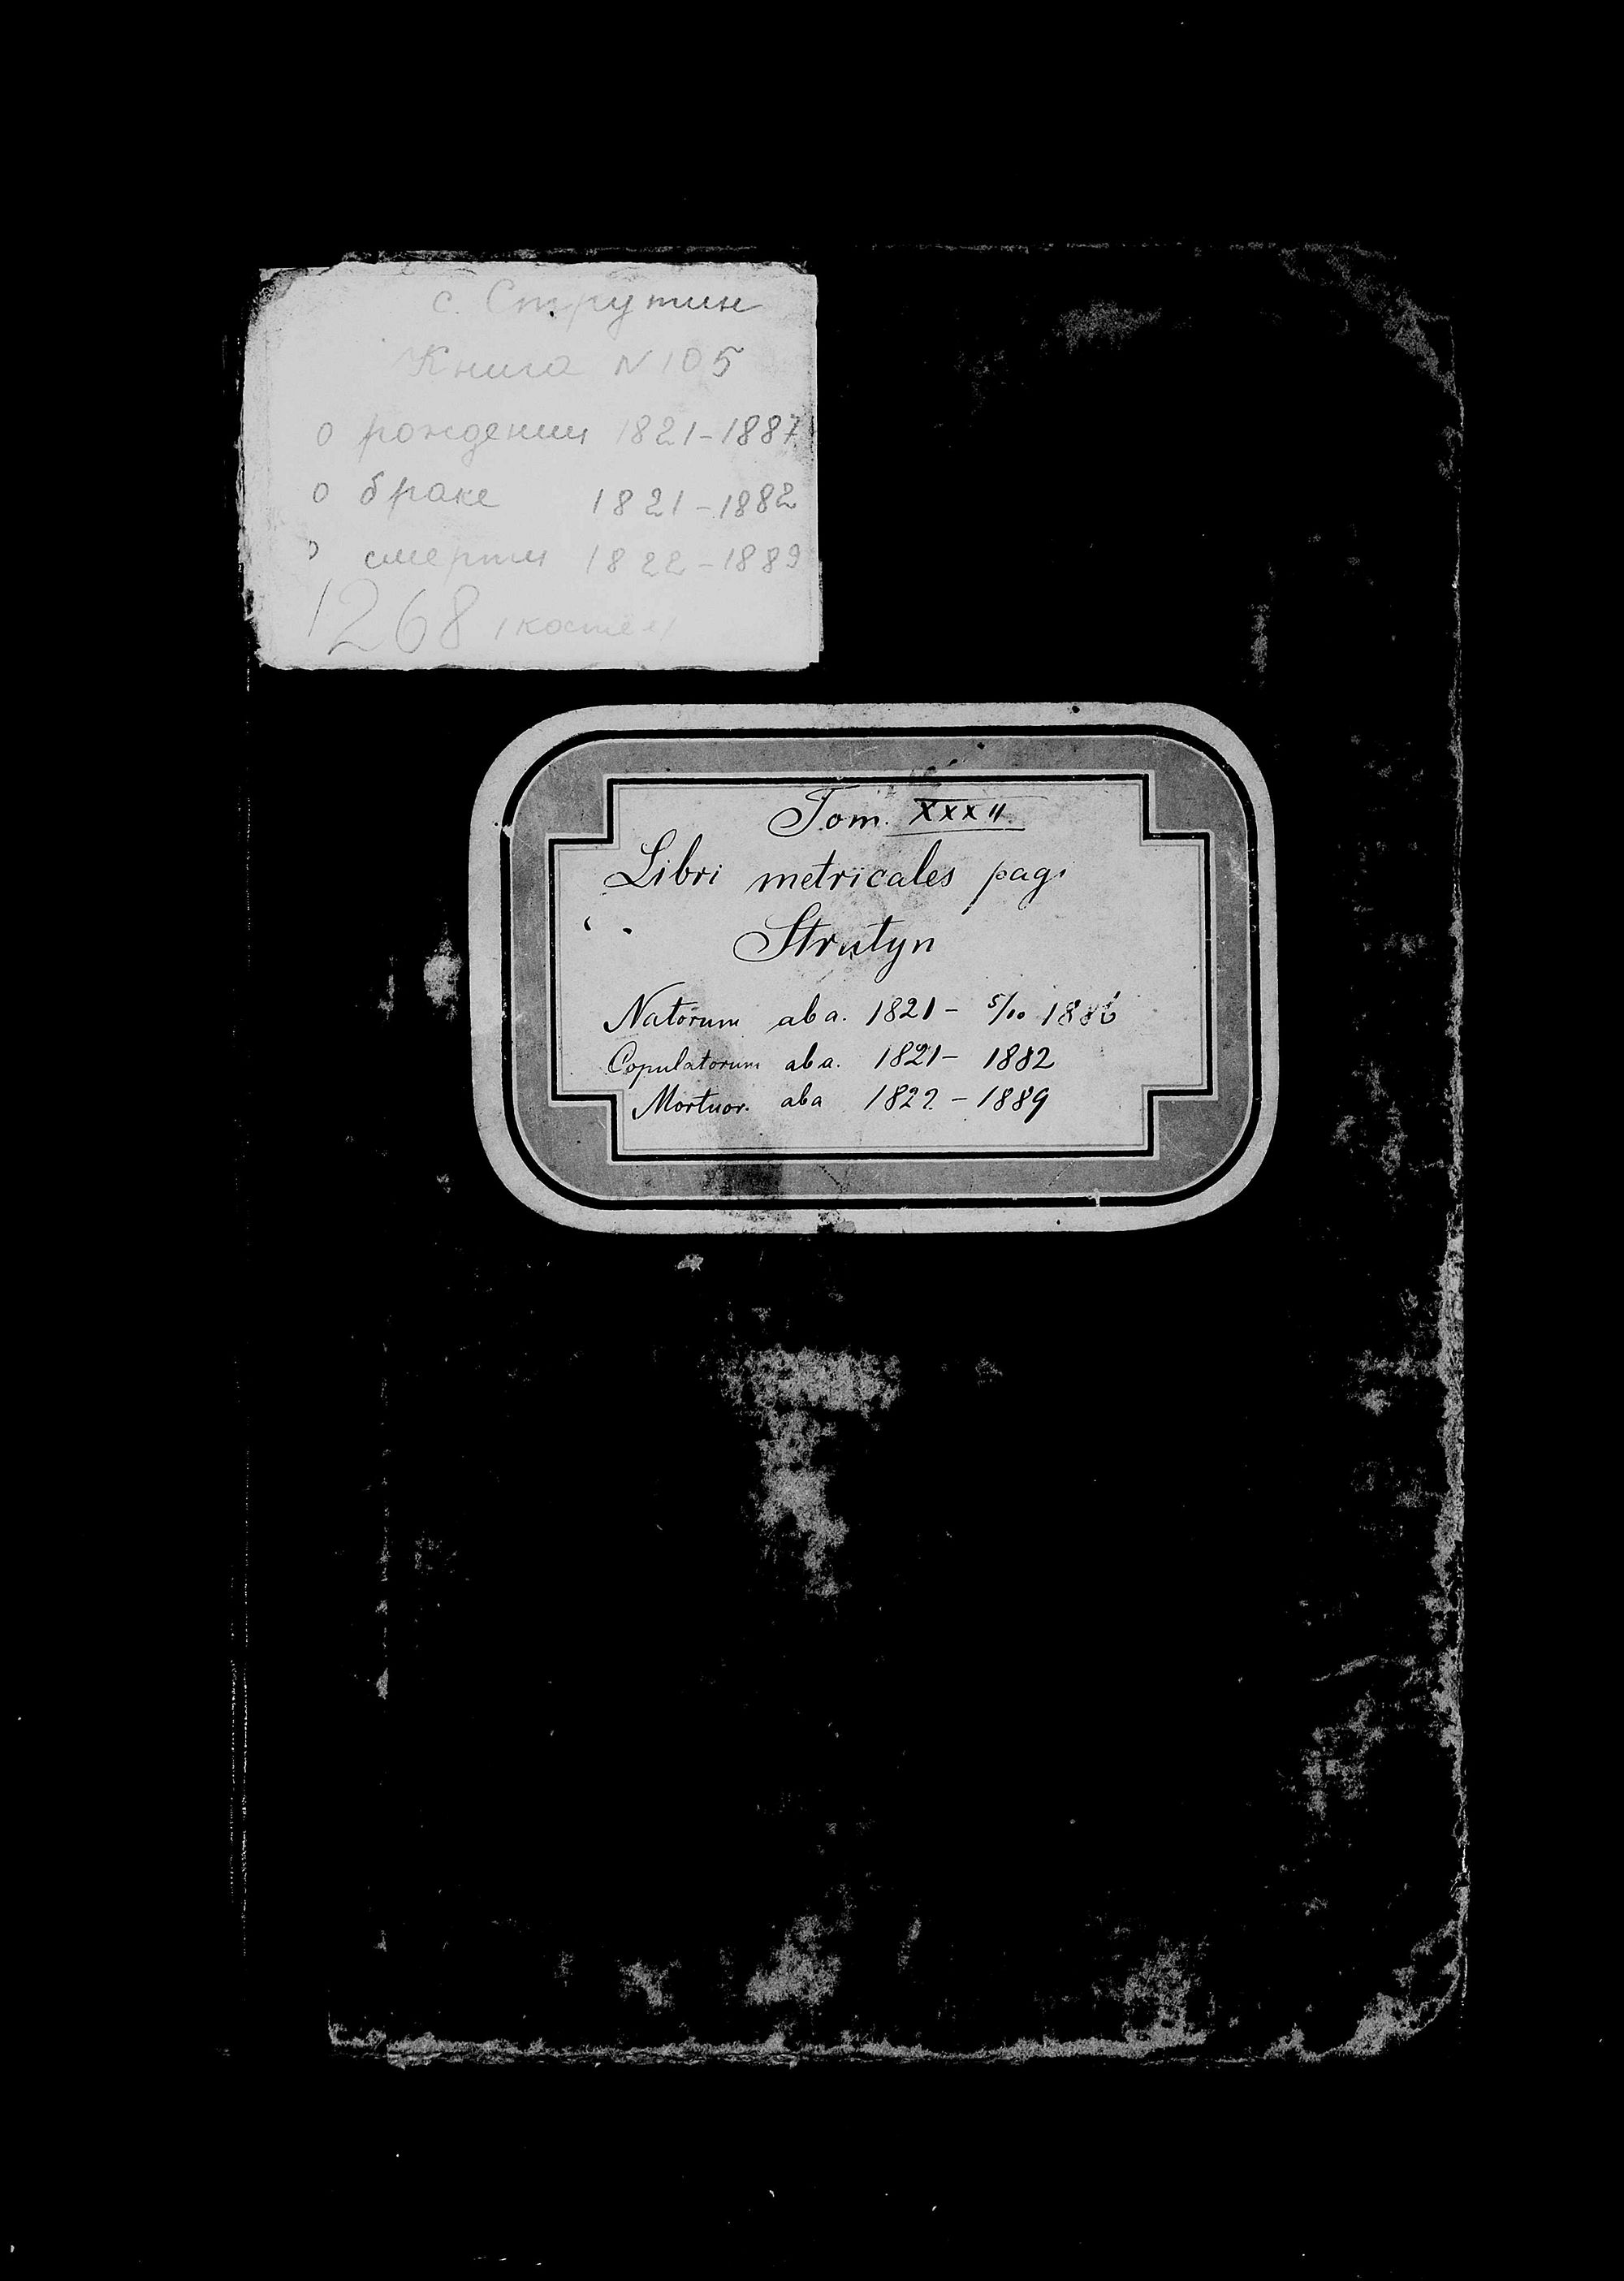 с. Струтин
Книга N 105
о рождении 1821-1887
о браке 1821-1882
о смерти 1822-1889
1268 /костел/
Tom. XXXII
Libri metricales pagi
Strutyn
Natorum ab a. 1821 - 5/10 1886
Copulatorum ab a. 1821 - 1882
Mortuor. ab a 1822 - 1889